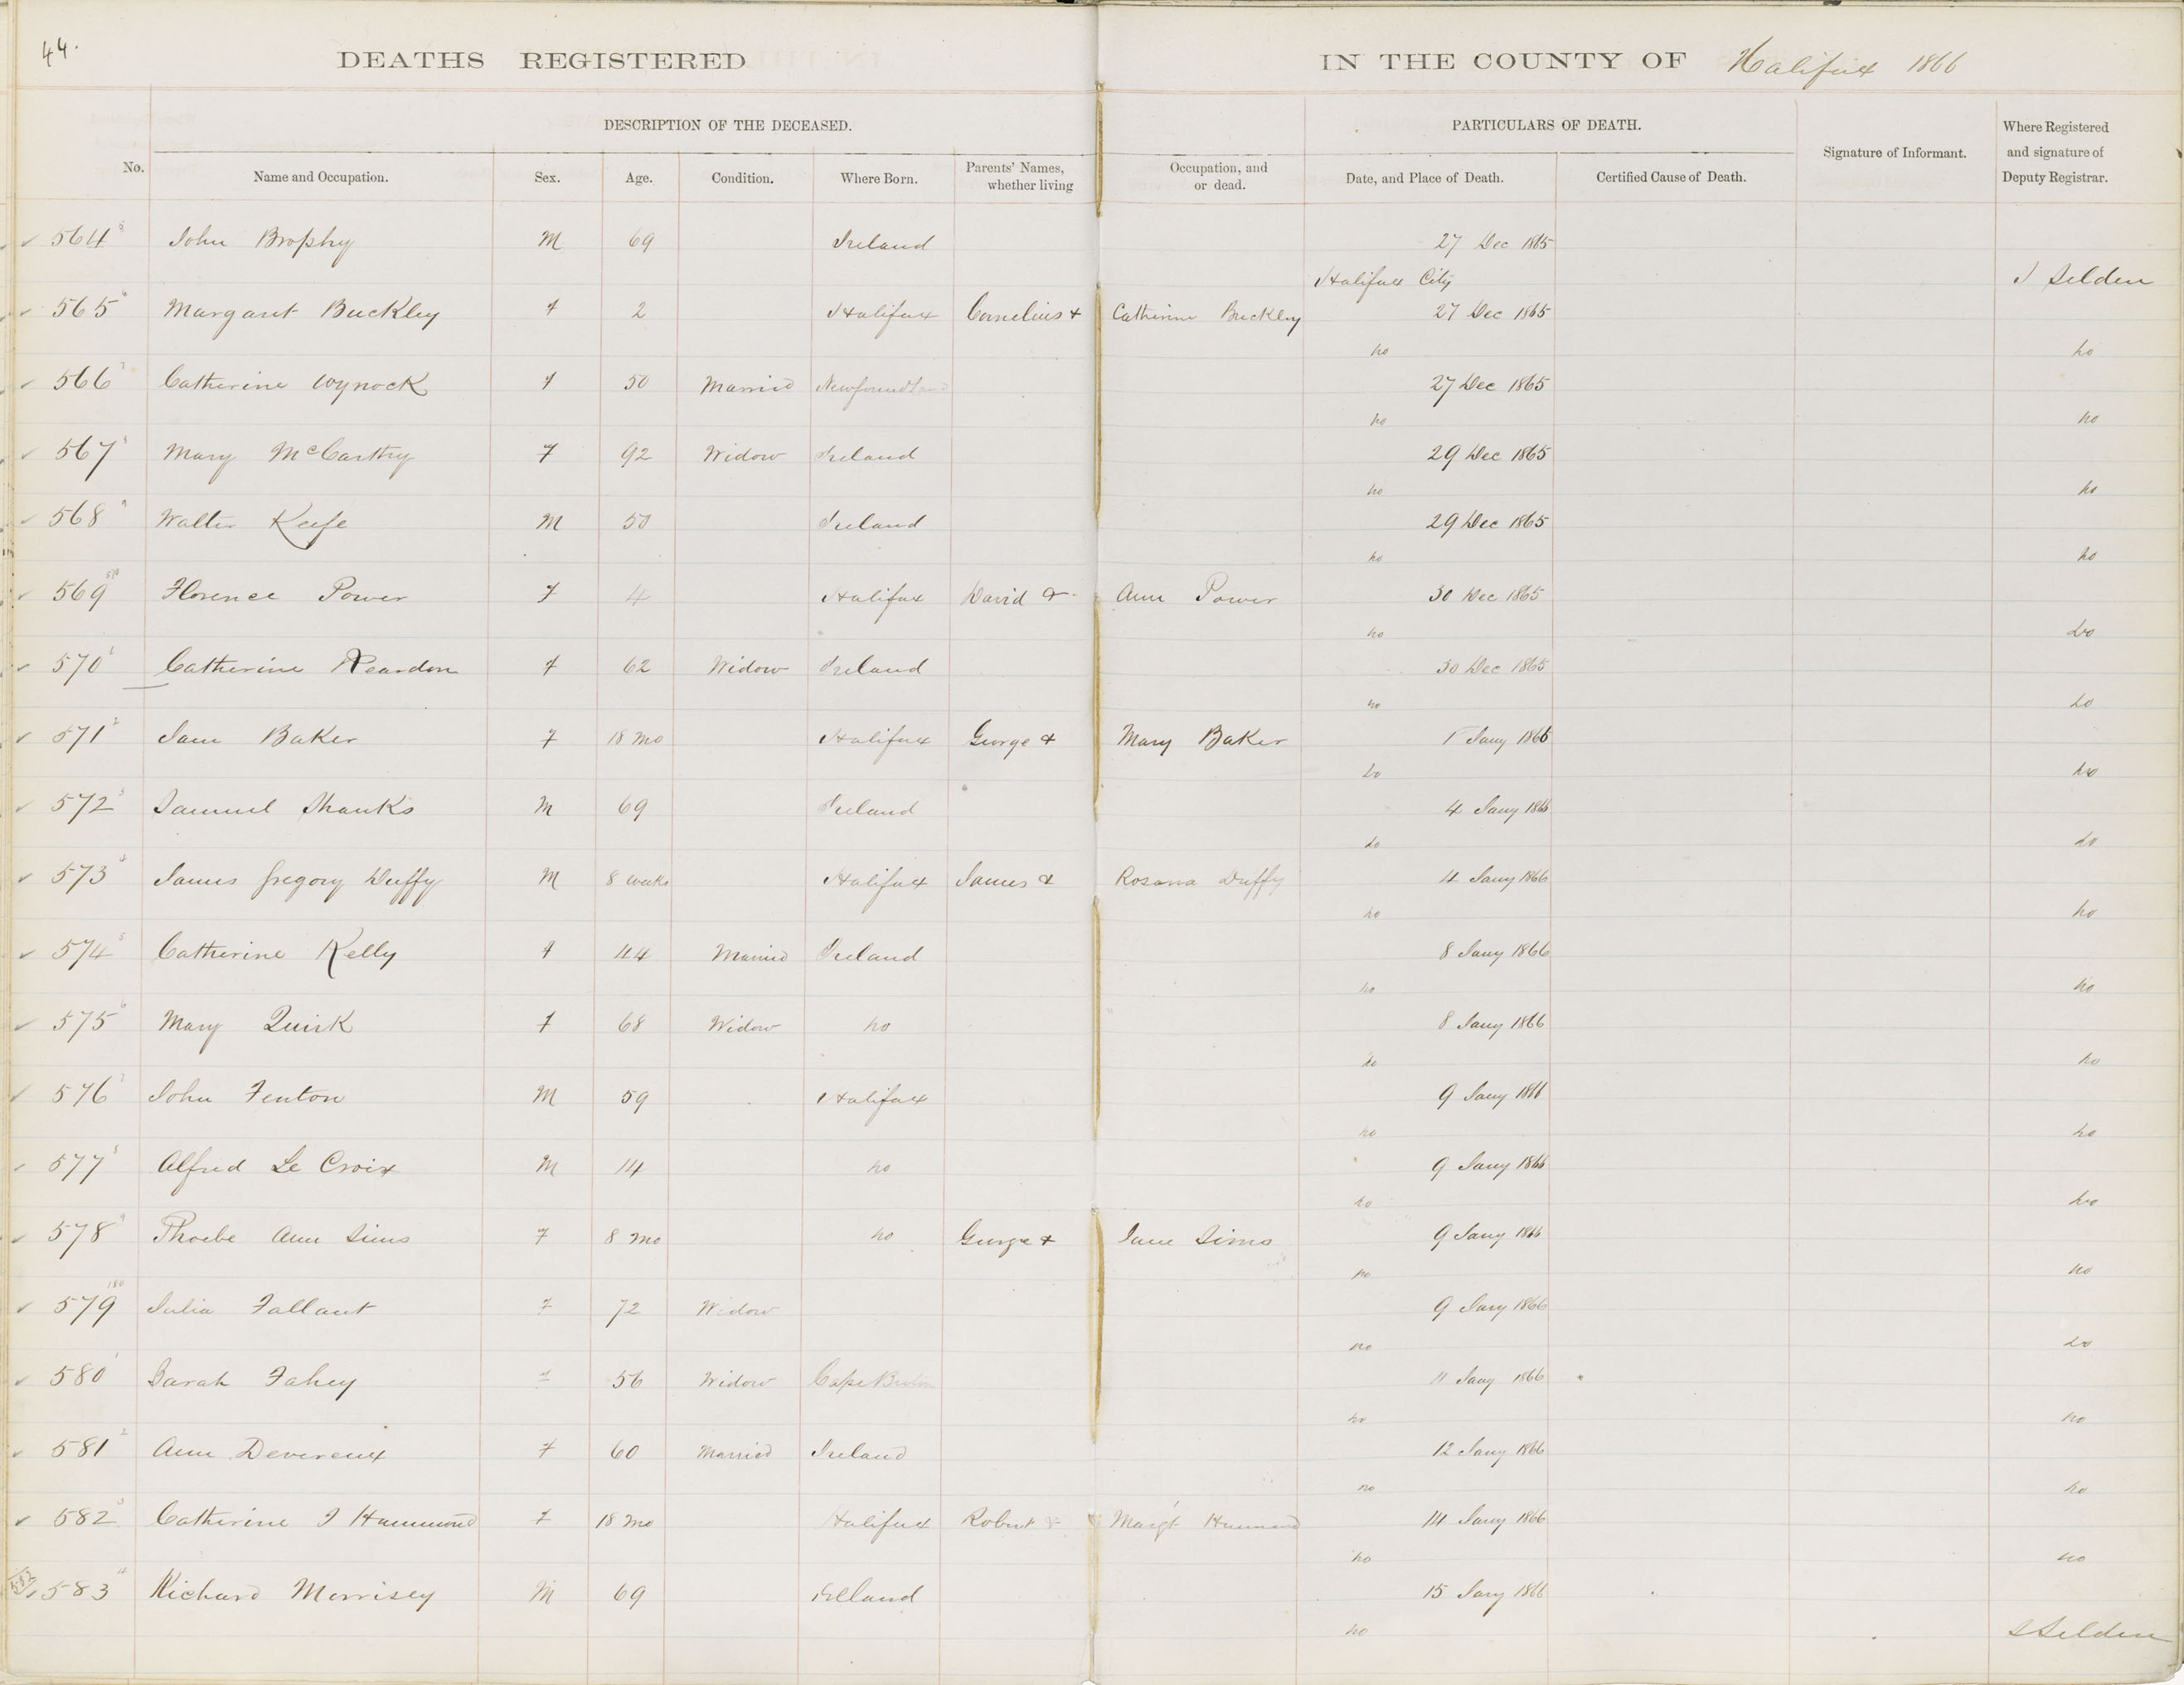 44.
DEATHS REGISTERED IN THE COUNTY OF Halifax 1866
DESCRIPTION OF THE DECEASED. PARTICULARS OF DEATH.
No. Name and Occupation. Sex. Age. Condition. Where Born. Parents' Names, whether living Occupation, and or dead. Date, and Place of Death. Certified Cause of Death. Signature of Informant. Where Registered and signature of Deputy Registrar.
564 John Brophy M 69 Ireland 27 Dec 1865
Halifax City J Selden
565 Margaret Buckley F 2 Halifax Cornelius + Catherine Buckley 27 Dec 1865
Do Do
566 Catherine Wynock F 50 Married Newfoundland 27 Dec 1865
Do Do
567 Mary McCarthy F 92 Widow Ireland 29 Dec 1865
Do Do
568 Walter Keefe M 50 Ireland 29 Dec 1865
Do Do
569 Florence Power F 4 Halifax David + Ann Power 30 Dec 1865
Do Do
570 Catherine Reardon F 62 Widow Ireland 30 Dec 1865
Do Do
571 Jane Baker F 18 mo Halifax George + Mary Baker 1 Jany 1866
Do Do
572 Samuel Shanks M 69 Ireland 4 Jany 1866
Do Do
573 James Gregory Duffy M 8 weeks Halifax James + Rosanna Duffy 4 Jany 1866
Do Do
574 Catherine Kelly F 44 Married Ireland 8 Jany 1866
Do Do
575 Mary Quirk F 68 Widow Do 8 Jany 1866
Do Do
576 John Fenton M 59 Halifax 9 Jany 1866
Do Do
577 Alfred Le Croix M 14 Do 9 Jany 1866
Do Do
578 Phoebe Ann Sims F 8 mo Do George + Jane Sims 9 Jany 1866
Do Do
579 Julia Tallant F 72 Widow 9 Jany 1866
Do Do
580 Sarah Fahey F 56 Widow Cape Breton 11 Jany 1866
Do Do
581 Ann Devereux F 60 Married Ireland 12 Jany 1866
Do Do
582 Catherine J Hammond F 18 mo Halifax Robert + Margt Hammond 14 Jany 1866
Do Do
583 Richard Morrisey M 69 Ireland 15 Jany 1866
Do J Selden